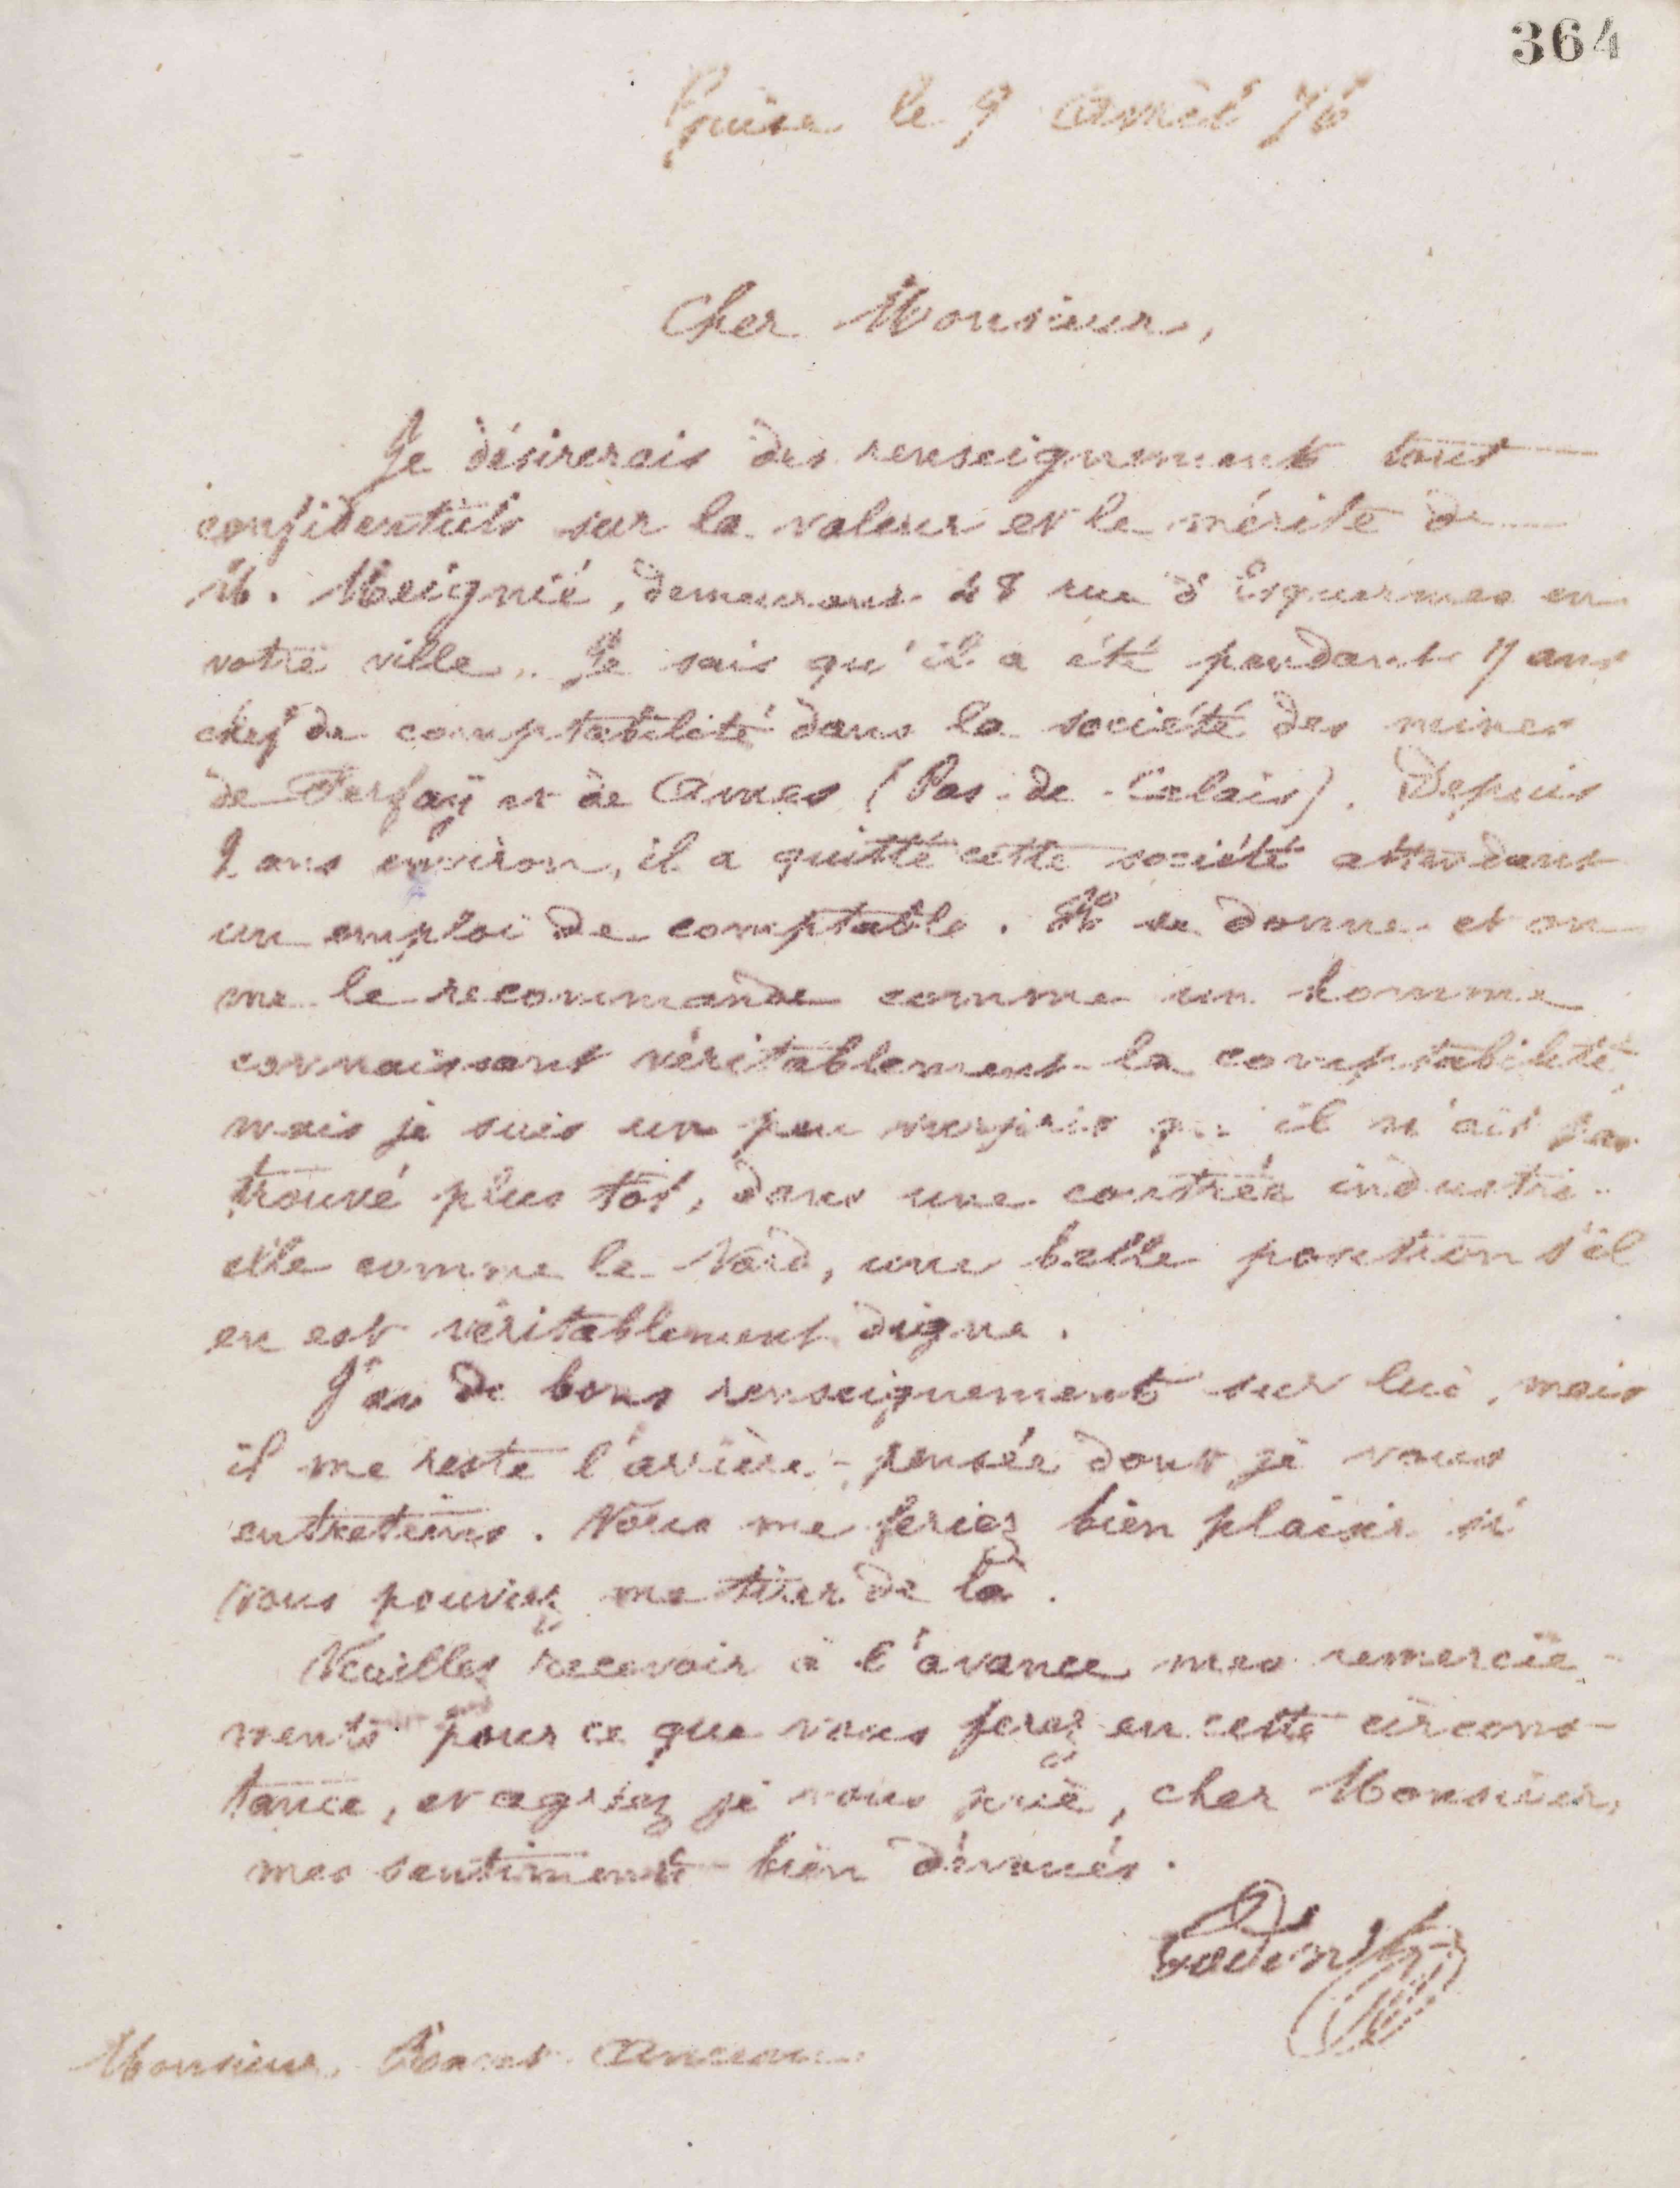 364
Guise le 9 Avril 76
Cher Monsieur,
Je désirerais des renseignements tout
confidentiels sur la valeur et le mérite de
M. Meignié, demeurant 48 rue d'Esquermes en
votre ville. Je sais qu'il a été pendant 7 ans
chef de comptabilité dans la société des mines
de Ferfay et de Ames (Pas-de-Calais). Depuis
2 ans environ, il a quitté cette société attendant
un emploi de comptable. Il se donne et on
me le recommande comme un homme
connaissant véritablement la comptabilité,
mais je suis un peu surpris qu'il n'ait pas
trouvé plus tôt, dans une contrée industri-
elle comme le Nord, une belle position s'il
en est véritablement digne.
J'ai de bons renseignements sur lui, mais
il me reste l'arrière-pensée dont je vous
entretiens. Vous me feriez bien plaisir si
vous pouviez me tirer de là.
Veuillez recevoir à l'avance mes remercie-
ments pour ce que vous ferez en cette circons-
tance, et agréez je vous prie, cher Monsieur,
mes sentiments bien dévoués.
Godin
Monsieur